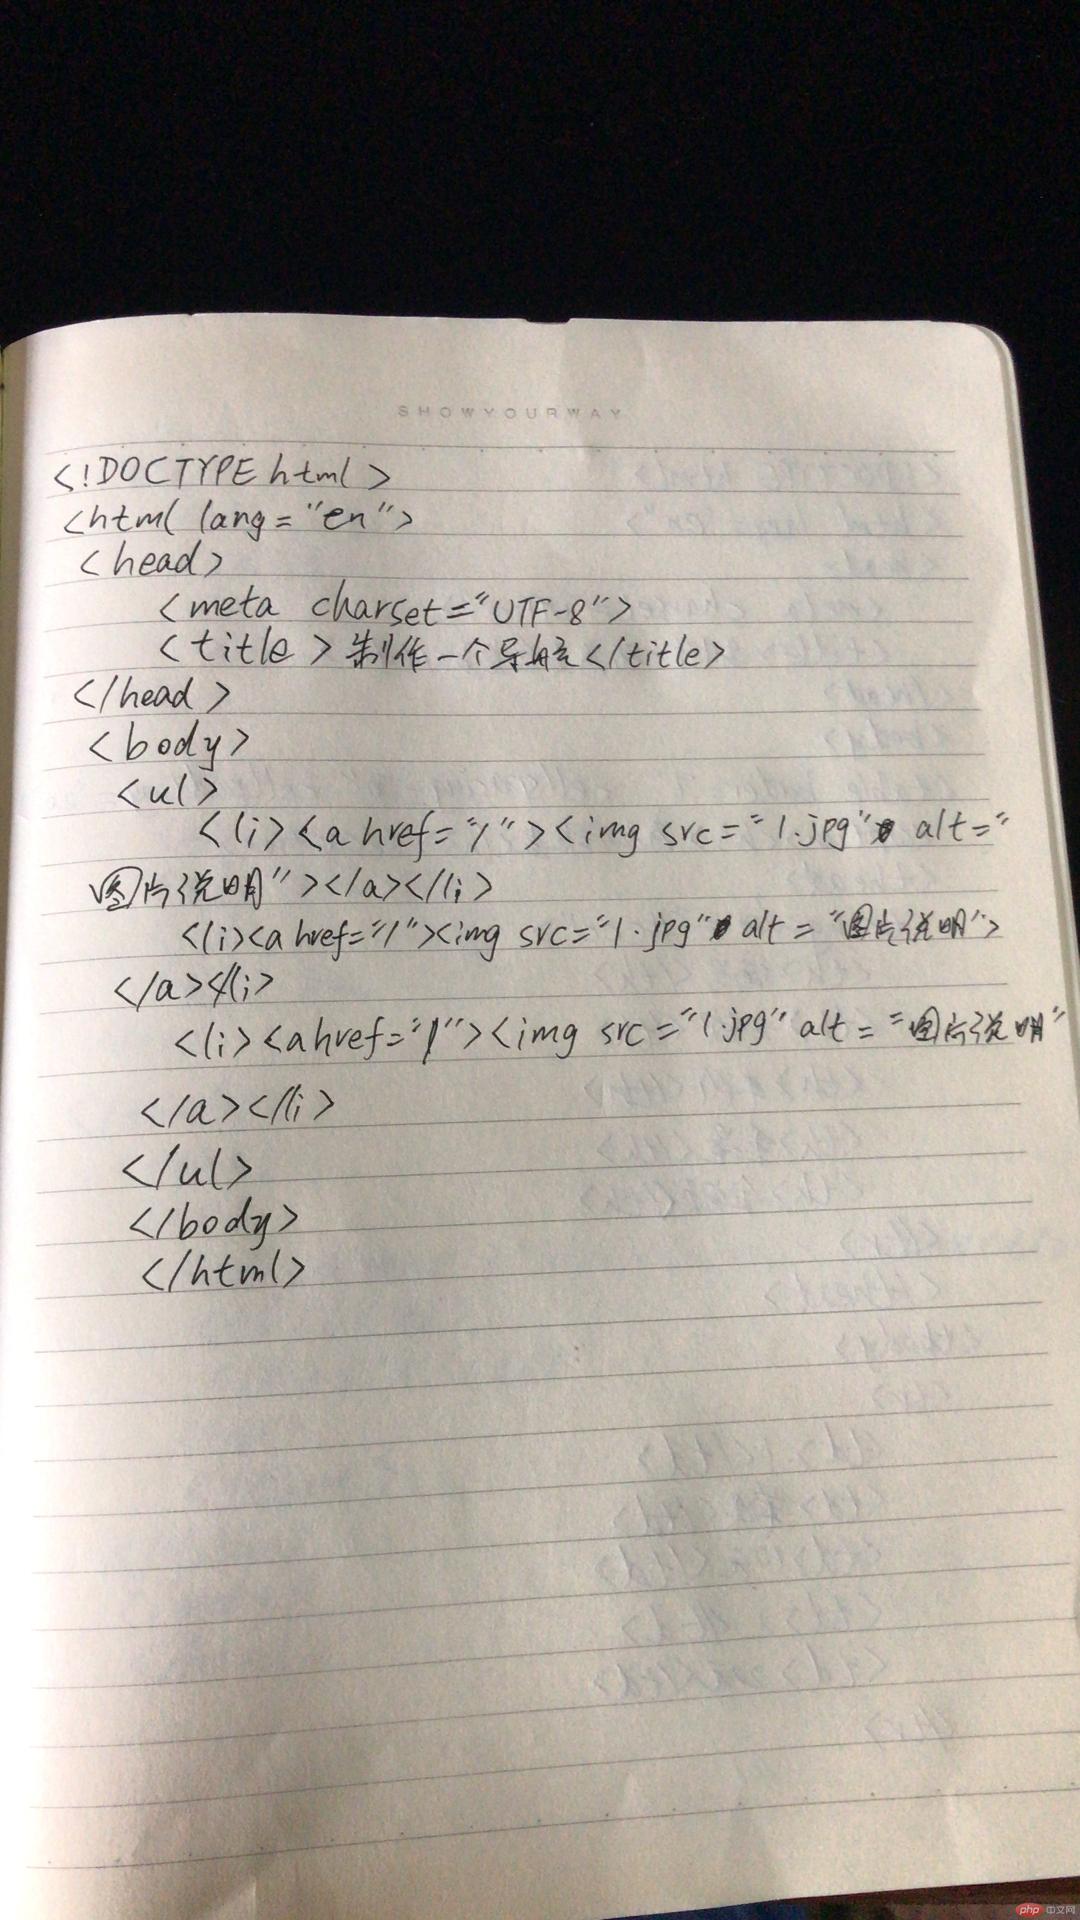 SHOWYOURWAY
<!DOCTYPE html>
<html lang="en">
<head>
<meta charset="UTF-8">
<title>制作一个导航</title>
</head>
<body>
<ul>
<li><a href="/"><img src="1.jpg" alt="
图片说明"></a></li>
<li><a href="/"><img src="1.jpg" alt="图片说明">
</a></li>
<li><a href="/"><img src="1.jpg" alt="图片说明"
</a></li>
</ul>
</body>
</html>
php 中文网